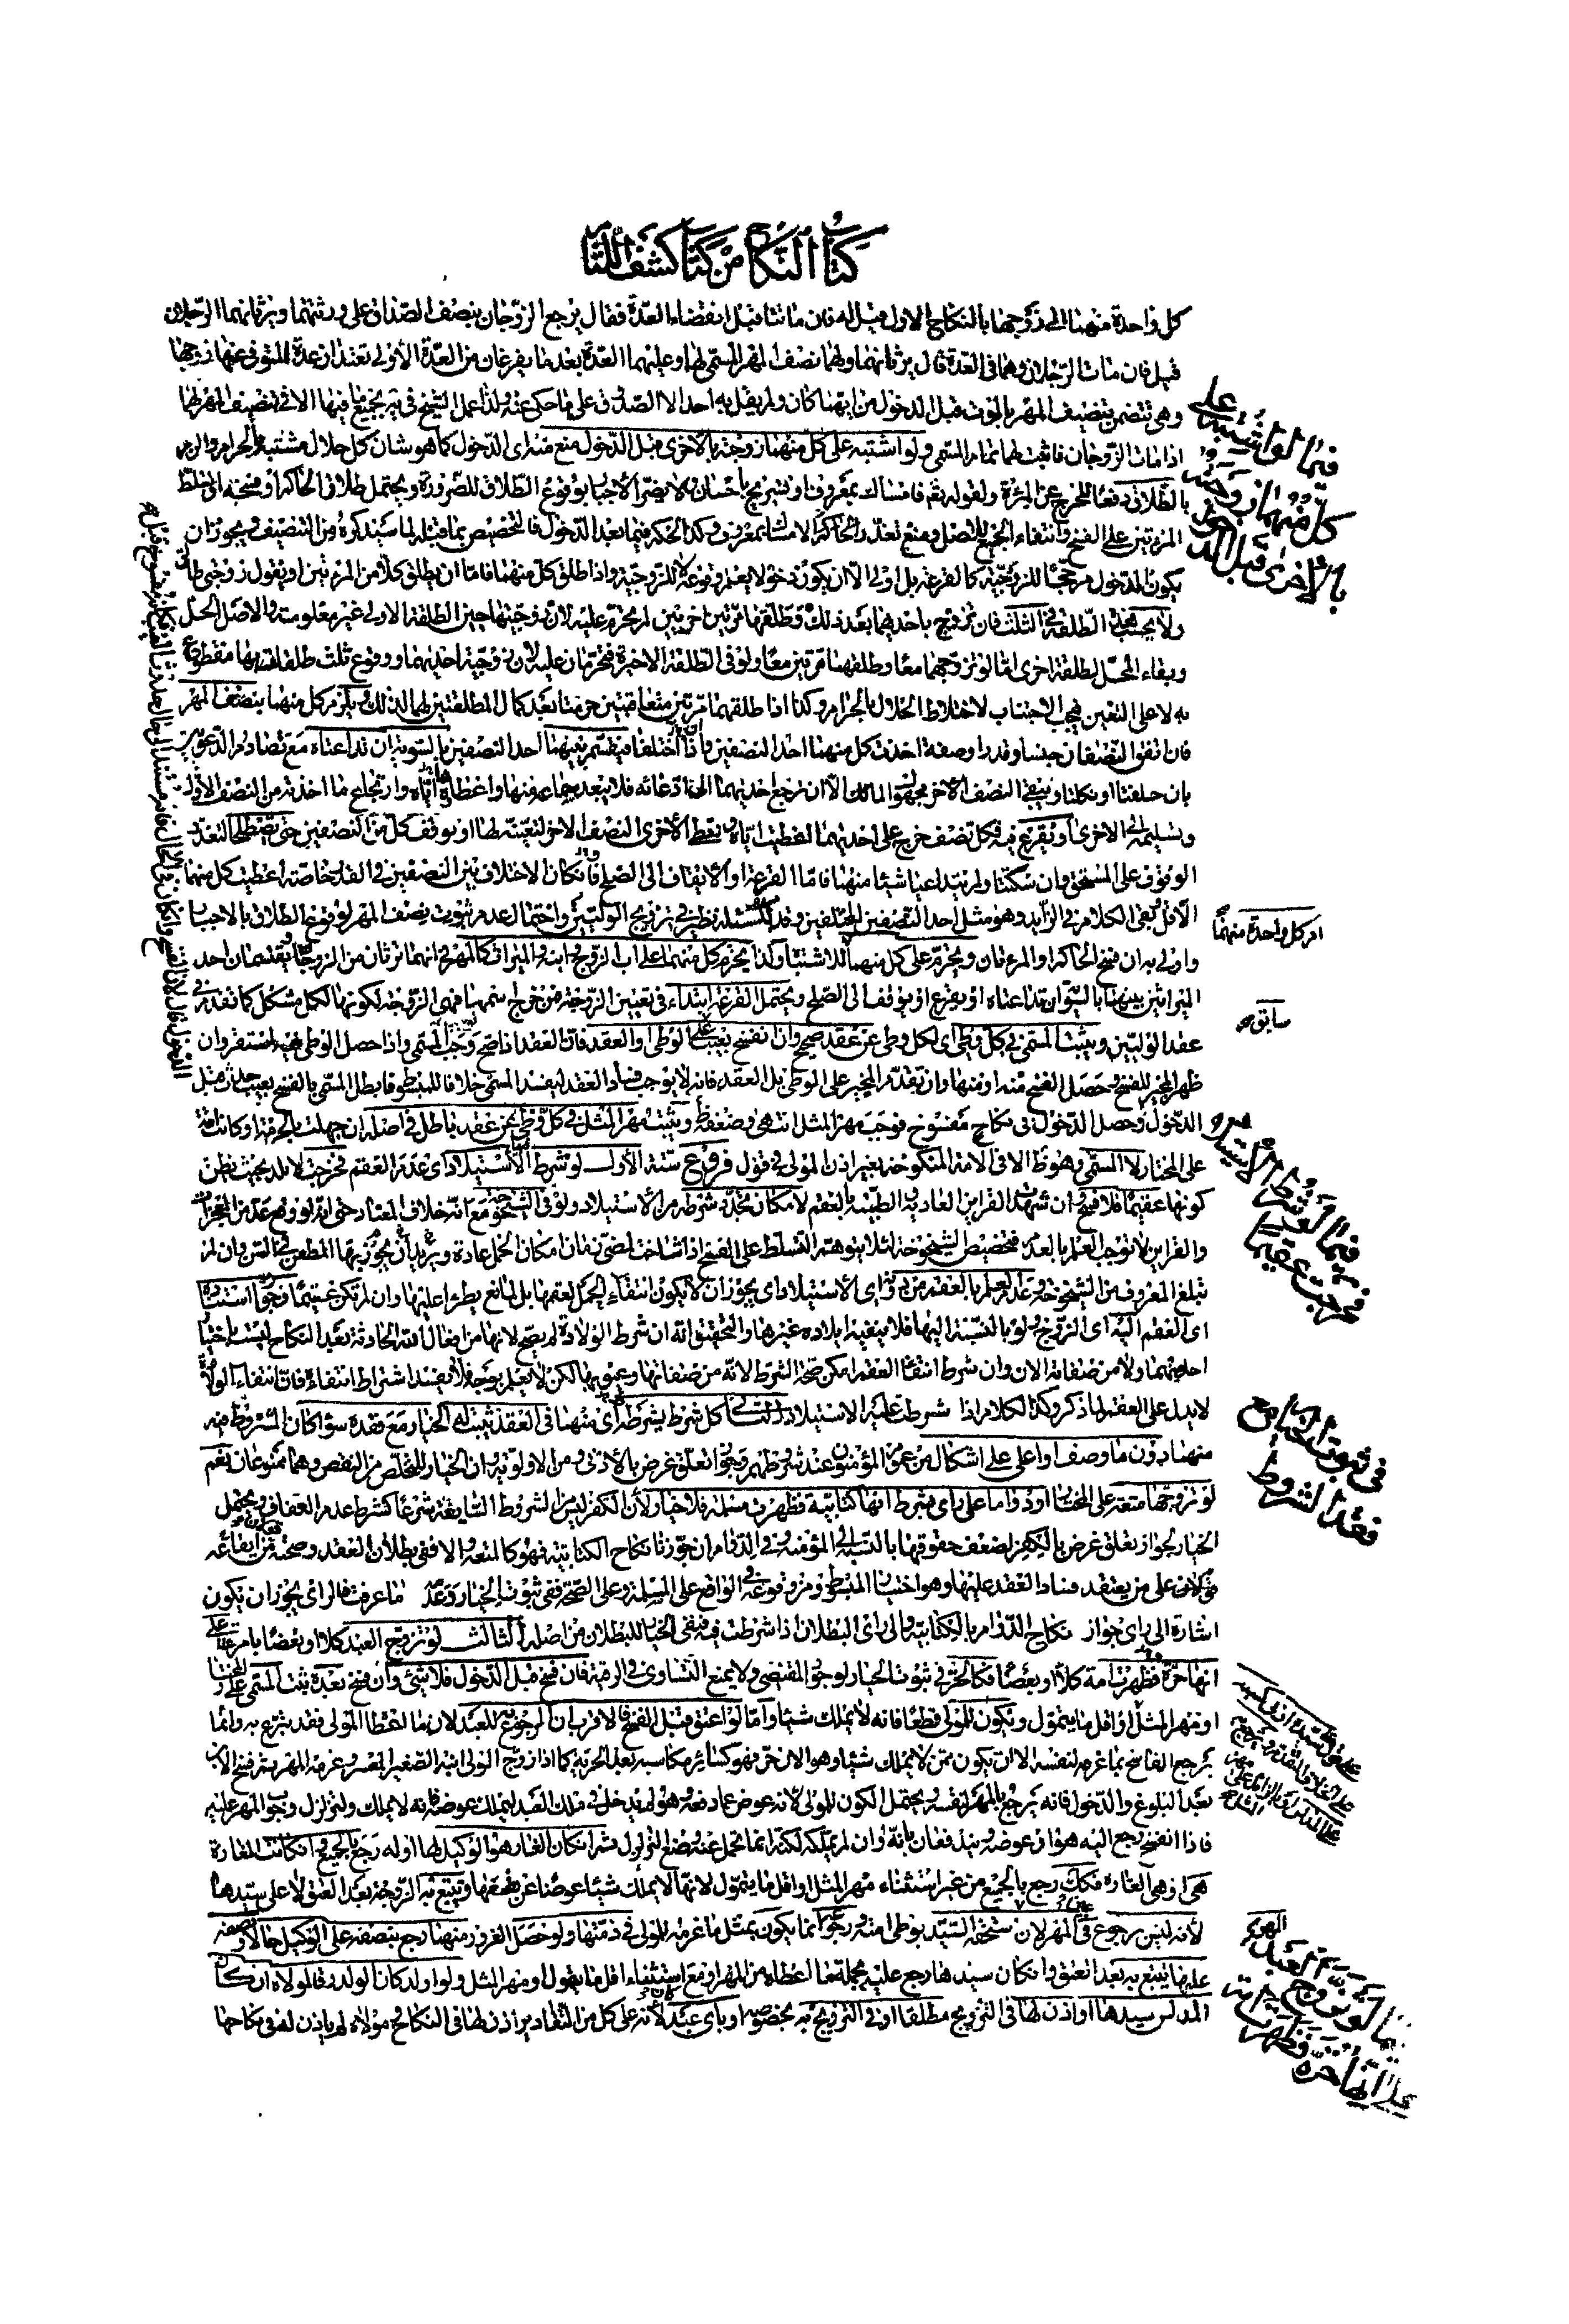 كتاب النكاح من كتاب كشف اللثام
كل واحدة منهما الى زوجها بالنكاح الاول قيل له فان ماتتا قبل انقضاء العدة فقال يرجع الزوجان بنصف الصداق على ورثتهما ويرثانهما الرجلان
قيل فان مات الرجلان وهما في العدة قال يرثانهما ولهما نصف المهر المسمى لهما وعليهما العدة بعد ما يفرغان من العدة الاولى تعتدان عدة المتوفى عنها زوجها
وهي تتضمن تنصيف المهر بالموت قبل الدخول من ايهما كان ولم يقل به احد الا الصدوق على ما حكى عنه ولذا عمل الشيخ في يه بجميع ما فيها الا في تنصيف المهر لهما
اذا مات الزوجان فاثبت لهما تمام المسمى ولو اشتبه على كل منهما زوجته بالاخرى قبل الدخول منع منه اى الدخول كما هو شان كل حلال مشتبه بالحرام والزم
بالطلاق دفعا للحرج عن المرءة ولقوله تعم فامساك بمعروف او تسريح باحسان ولا يضر الاجبار بوقوع الطلاق للضرورة ويحتمل طلاق الحاكم او فسخه او تسلط
المرءتين على الفسخ وانتفاء الجميع للاصل ومنع تعذر الامساك بمعروف وكذا الحكم فيما بعد الدخول فالتخصيص بما قبله لما سيذكره من التنصيف ويجوز ان
يكون الدخول مرجحا للزوجية كالقرعة بل اولى الا ان يكون دخولا يعلم وقوعه لا للزوجية واذا طلق كل منهما فاما ان يطلق كلا من المرءتين او يقول زوجتي طالق
ولا يحسب هذه الطلقة في الثلث فان تزوج باحديهما بعد ذلك وطلقها مرتين اخريين لم تحرم عليه لان زوجيتها حين الطلقة الاولى غير معلومة والاصل الحل
وبقاء المحل لطلقة اخرى اما لو تزوجهما معا وطلقهما مرتين معا ولو في الطلقة الاخيرة فتحرمان عليه لان زوجية احديهما ووقوع ثلث طلقات بها مقطوع
به لا على التعيين فيجب الاجتناب لاختلاط الحلال بالحرام وكذا اذا طلقهما مرتين متعاقبتين حرمتا بعد كمال المطلقتين لهما لذلك ويلزم كل منهما بنصف المهر
فان اتفق النصفان جنسا وقدرا وصفة اخذت كل منهما احد النصفين واذا اختلفا فيقسم بينهما احد النصفين بالسوية ان تداعتاه مع تصادم الدعويين
بان حلفتا او نكلتا ويبقى النصف الاخر مجهول المالك الا ان ترجع احديهما الى ادعائه فلا يبعد سماعه منها واعطائه اياه وارتجاع ما اخذته من النصف الاول
وتسليمه الى الاخرى او يقرع فيه فكل نصف خرج على احديهما اعطيت اياه وتعطى الاخرى النصف الاخر لتعينه لها او يوقف كل من النصفين حتى تصطلحا لتعذر
الوقوف على المستحق وان سكتتا ولم تدعيا شيئا منهما فاما القرعة او الايقاف الى الصلح فان كان الاختلاف بين النصفين في القدر خاصة اعطيت كل منهما
الاقل وبقى الكلام في الزايد وهو مثل احد النصفين المختلفين وقد مر للمسئلة نظير في تزويج الوليين واحتمال عدم ثبوت نصف المهر لوقوع الطلاق بالاجبار
واولى به ان فسخ الحاكم او المرءتان ويحرم على كل منهما ام الاخرى للاشتباه وكذا يحرم كل منهما على اب الزوج وابنه والميراث كالمهر في انهما ترثان من الزوجين فتقتسمان احد
الميراثين بينهما بالسوية ان تداعتاه او يقرع او يوقف الى الصلح ويحتمل القرعة ابتداء في تعيين الزوجة فمن خرج اسمها فهى الزوجة لكونها لكل مشكل كما تقدم في
عقد الوليين ويثبت المسمى في كل وطى اى لكل وطى عن عقد صحيح وان انفسخ بعيب سابق على الوطى او العقد فان العقد اذا صح وجب المسمى واذا حصل الوطى فيه استقر وان
ظهر المخير للفسخ وحصل الفسخ منه او منها وان تقدم المخير على الوطى بل العقد فانه لا يوجب فساد العقد ليفسد المسمى خلافا للمبسوط فابطل المسمى بالفسخ بعيب حدث قبل
الدخول وحصل الدخول في نكاح مفسوخ فوجب مهر المثل انتهى وضعفه ظ ويثبت مهر المثل في كل وطى عن عقد باطل في اصله ان جهلت بالحرمة او كانت امة
على المختار لا المسمى وهو ظ الا في الامة المنكوحة بغير اذن المولى في قول فروع ستة الاول لو شرط الاستيلاد اى عدم العقم فخرجت لا تلد بحيث يظن
كونها عقيما فلا فسخ وان شهدت القراين العادية الطبية بالعقم لامكان تجدد شرطه من الاستيلاد ولو في الشيخوخة مع انه خلاف المعتاد حتى انه لو وقع عد من المعجزات
والقراين لا توجب العلم بالعدم فتخصيص الشيخوخة لئلا يتوهم التسلط على الفسخ اذا شاخت لمضى زمان امكان الحمل عادة ويريد ان يجوز بها المطعن في السن وان لم
تبلغ المعروف من الشيخوخة وعدم العلم بالعقم من دونه اى الاستيلاد اى يجوز ان لا يكون انتفاء الحمل لعقمها بل لمانع يطرء عليها وان لم تكن عقيما وجواز استناده
اى العقم اليه اى الزوج ولو بالنسبة اليها فلا ينفيه ايلاده غيرها والتحقيق انه ان شرط الولادة لم يصح لانها من افعال الله الحادثة بعد النكاح ليست باختيار
احدهما ولا من صفاته الان وان شرط انتفاء العقم امكن صحة الشرط لانه من صفاتها وعيوبها لكن لا يعلم بوجه فلا يفيد اشتراط انتفاءه فان انتفاء الولادة
لا يدل على العقم لما ذكر وكذا الكلام اذا شرطت عليه الاستيلاد الثاني كل شرط يشرطه اى منهما في العقد يثبت له الخيار مع فقده سواء كان المشروط فيه
منهما دون ما وصف او اعلى على اشكال من عموم المؤمنون عند شروطهم وجواز تعلق غرض بالادنى ومن الاولوية وان الخيار للتخلص من النقص وهما ممنوعان نعم
لو تزوجها متعة على المختار او دواما على راى بشرط انها كتابية فظهرت مسلمة فلا خيار لان الكفر ليس من الشروط السايغة شرعا كشرط عدم العفاف ويحتمل
الخيار لجواز تعلق غرض بالكفر لضعف حقوقها بالنسبة الى المؤمنة وفي الدوام ان جوزنا نكاح الكتابية فهو كالمتعة والا ففي بطلان العقد وصحته من ايقاعه
على من يعتقد فساد العقد عليها وهو اختيار المبسوط ومن وقوعه في الواقع على المسلمة وعلى الصحة ففي ثبوت الخيار وعدمه ما عرفت فالراى يجوز ان يكون
اشارة الى راى جواز نكاح الدوام بالكتابية والى راى البطلان اذا شرطت فيه فينفى الخيار للبطلان من اصله الثالث لو تزوج العبد كلا او بعضا بامرءة على
انها حرة فظهرت امة كلا او بعضا فكالحر في ثبوت الخيار لوجود المقتضى ولا يمنع التساوى في الرقية فان فسخ قبل الدخول فلا شئ وان فسخ بعده يثبت المسمى على المختار
او مهر المثل او اقل ما يتمول ويكون للمولى قطعا فانه لا يملك شيئا واما لو اعتق قبل الفسخ فالاقرب ان الرجوع به للعبد لان ما اعطاه المولى فقد تبرع به وانما
يرجع الفاسخ بما غرمه لنفسه الا ان يكون ممن لا يملك شيئا وهو الان حر فهو كساير مكاسبه بعد الحرية كما اذا زوج الولي ابنه الصغير المعسر وغرم المهر ثم فسخ الابن
بعد البلوغ والدخول فانه يرجع بالمهر لنفسه ويحتمل الكون للمولى لانه عوض عما دفعه وهو لم يدخل في ملك العبد ليملك عوضه فانه لا يملك ولتزلزل وجوب المهر عليه
فاذا انفسخ رجع اليه هو او عوضه
هى اى وهى الغارة فكذلك رجع بالجميع من غير استثناء مهر المثل او اقل ما يتمول لانها لا تملك شيئا عوضا عن بضعها ويتبع به الزوجة بعد العتق لا على سيدها
لانه ليس برجوع في المهر لان مستحقه السيد بوطى امته ورجوعه انما يكون بمثل ما غرمه للمولى في ذمتها ولو حصل الغرور منهما رجع بنصفه على الوكيل حالا ونصفه
عليها يتبع به بعد العتق وان كان سيدها رجع عليه بجملة ما اعطاه من المهر او مع استثناء اقل ما يتمول او مهر المثل ولو اولد كان الولد رقا لمولاه ان كان
المدلس سيدها او اذن لها في التزويج مطلقا او في التزويج به بخصوصه او باى عبد لانه على كل من التقادير اذن لها في النكاح ومولاه لم ياذن له في نكاحها
فيما لو اشتبه على
كل منهما زوجته
بالاخرى قبل الدخول
ام كل واحدة منهما
سابق
فيما لو شرط الاستيلاد
فخرجت عقيما
في ثبوت الخيار مع
فقد الشروط
فيما لو تزوج العبد
على انها حرة فظهرت